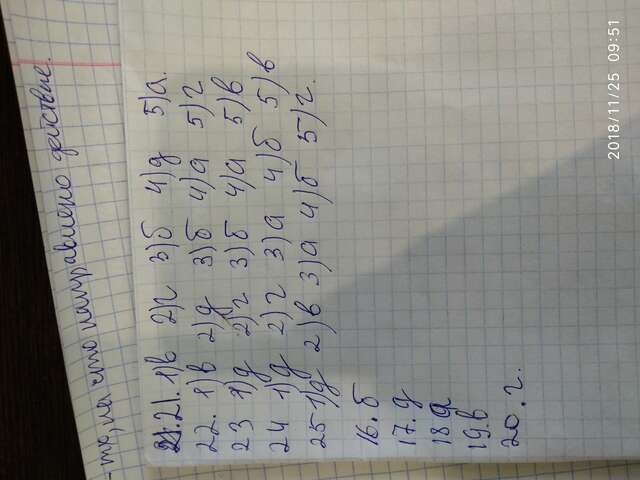 - то, на что направлено действие.
21. 1)в 2)г 3)б 4)д 5)а.
22. 1)в 2)д 3)б 4)а 5)г
23 1)д 2)г 3)б 4)а 5)в
24 1)д 2)г 3)а 4)б 5)в
25 1)д 2)в 3)а 4)б 5)г.
16. б
17. д
18 а
19.в
20. г.
2018/11/25 09:51